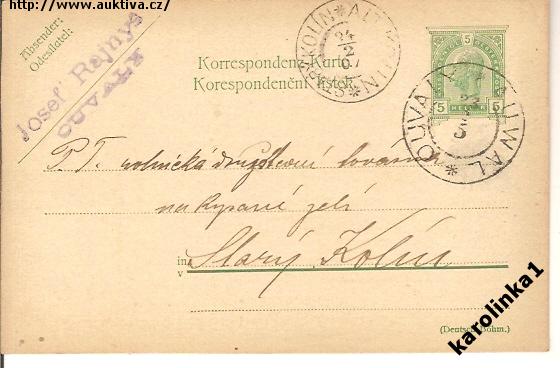 http://www.auktiva.cz/
Absender:
Odesílatel:
Josef Rajnyš
OUVALY
Korrespondenz-Karte
Korespondenční lístek
ALT KOLIN
STARÝ KOLÍN
24
2
07
5 HELLER 5
OUVALY UWAL
23
P. T. rolnická družstevní továrna
na
Starý Kolín
in
v
(Deutsch-Böhm.)
karolinka1